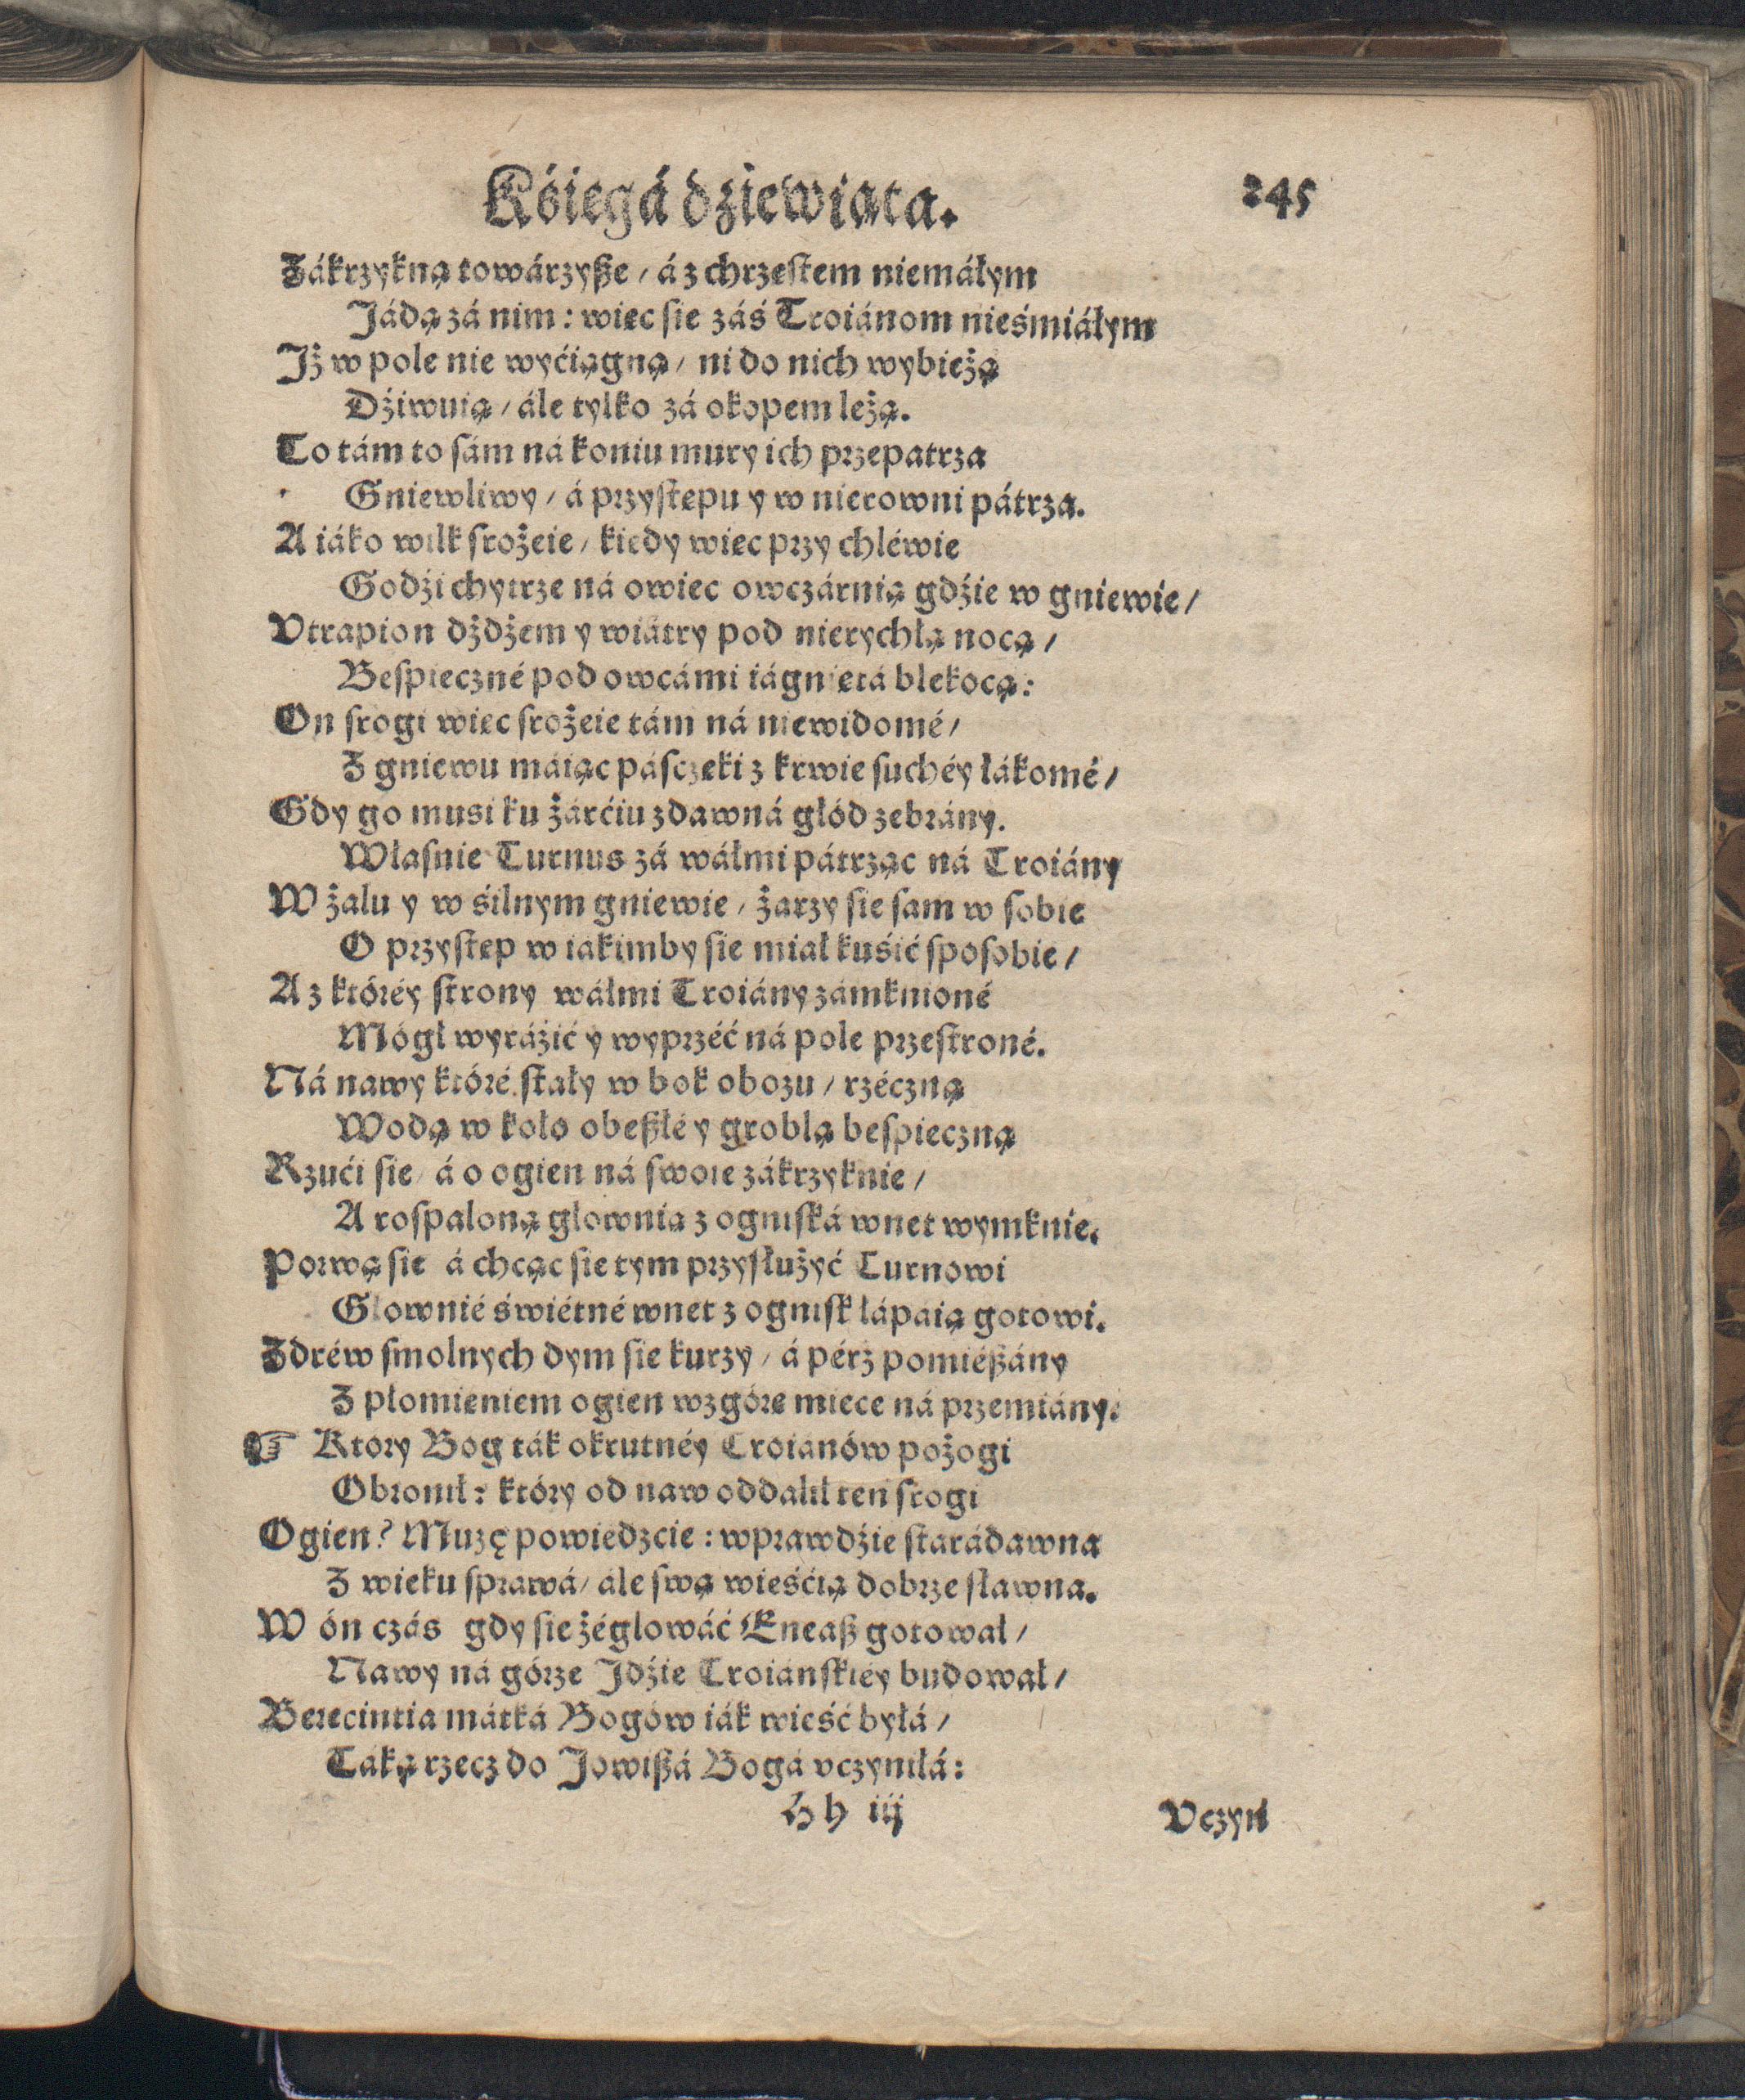 Kśiegá dźiewiąta. 245
Zákrzykną towárzyße / á z chrzeſtem niemáłym
Jádą zá nim : wiec ſie záś Troiánom nieśmiáłym
Jż w pole nie wyćiągną / ni do nich wybieżą
Dźiwuią / ále tylko zá okopem leżą.
To tám to ſám ná koniu mury ich przepatrza
Gniewliwy / á przyſtepu y w nierowni pátrza.
A iáko wilk ſrożeie / kiedy wiec przy chléwie
Godźi chytrze ná owiec owczárnią gdźie w gniewie /
Vtrapion dżdżem y wiátry pod nierychłą nocą /
Beſpieczné pod owcámi iágnietá blekocą :
On ſrogi wiec ſrożeie tám ná niewidomé /
Z gniewu máiąc páſczeki z krwie ſuchéy łákomé /
Gdy go musi ku żárćiu zdawná głód zebrány.
Własnie Turnus zá wáłmi pátrząc ná Troiány
W żalu y w śilnym gniewie / żarzy ſie ſam w ſobie
O przyſtep w iakimby ſie miał kuśić ſpoſobie /
A z któréy ſtrony wáłmi Troiány zámknioné
Mógł wyráźić y wyprzéć ná pole przeſtroné.
Ná nawy któré ſtały w bok obozu / rzéczną
Wodą w koło obeßłé y groblą beſpieczną
Rzući ſie / á o ogien ná ſwoie zákrzyknie /
A roſpaloną głownią z ogniſká wnet wymknie.
Porwą ſie á chcąc ſie tym przyſłużyć Turnowi
Głownié świétné wnet z ogniſk łápáią gotowi.
Z dréw ſmolnych dym ſie kurzy / á pérz pomiéßány
Z płomieniem ogien wzgóre miece ná przemiány.
☞ Ktory Bog ták okrutnéy Troianów pożogi
Obronił : który od naw oddalił ten ſrogi
Ogien ? Muzę powiedzcie : wprawdźie ſtarádawna
Z wieku ſprawá / ále ſwą wieśćią dobrze ſławna.
W ón czás gdy ſie żéglowáć Eneaß gotował /
Nawy ná górze Jdźie Troiánſkiéy budował /
Berecintia mátká Bogów iák wieść byłá /
Táką rzecz do Jowißá Bogá vczyniłá :
Hh iij Vczyń